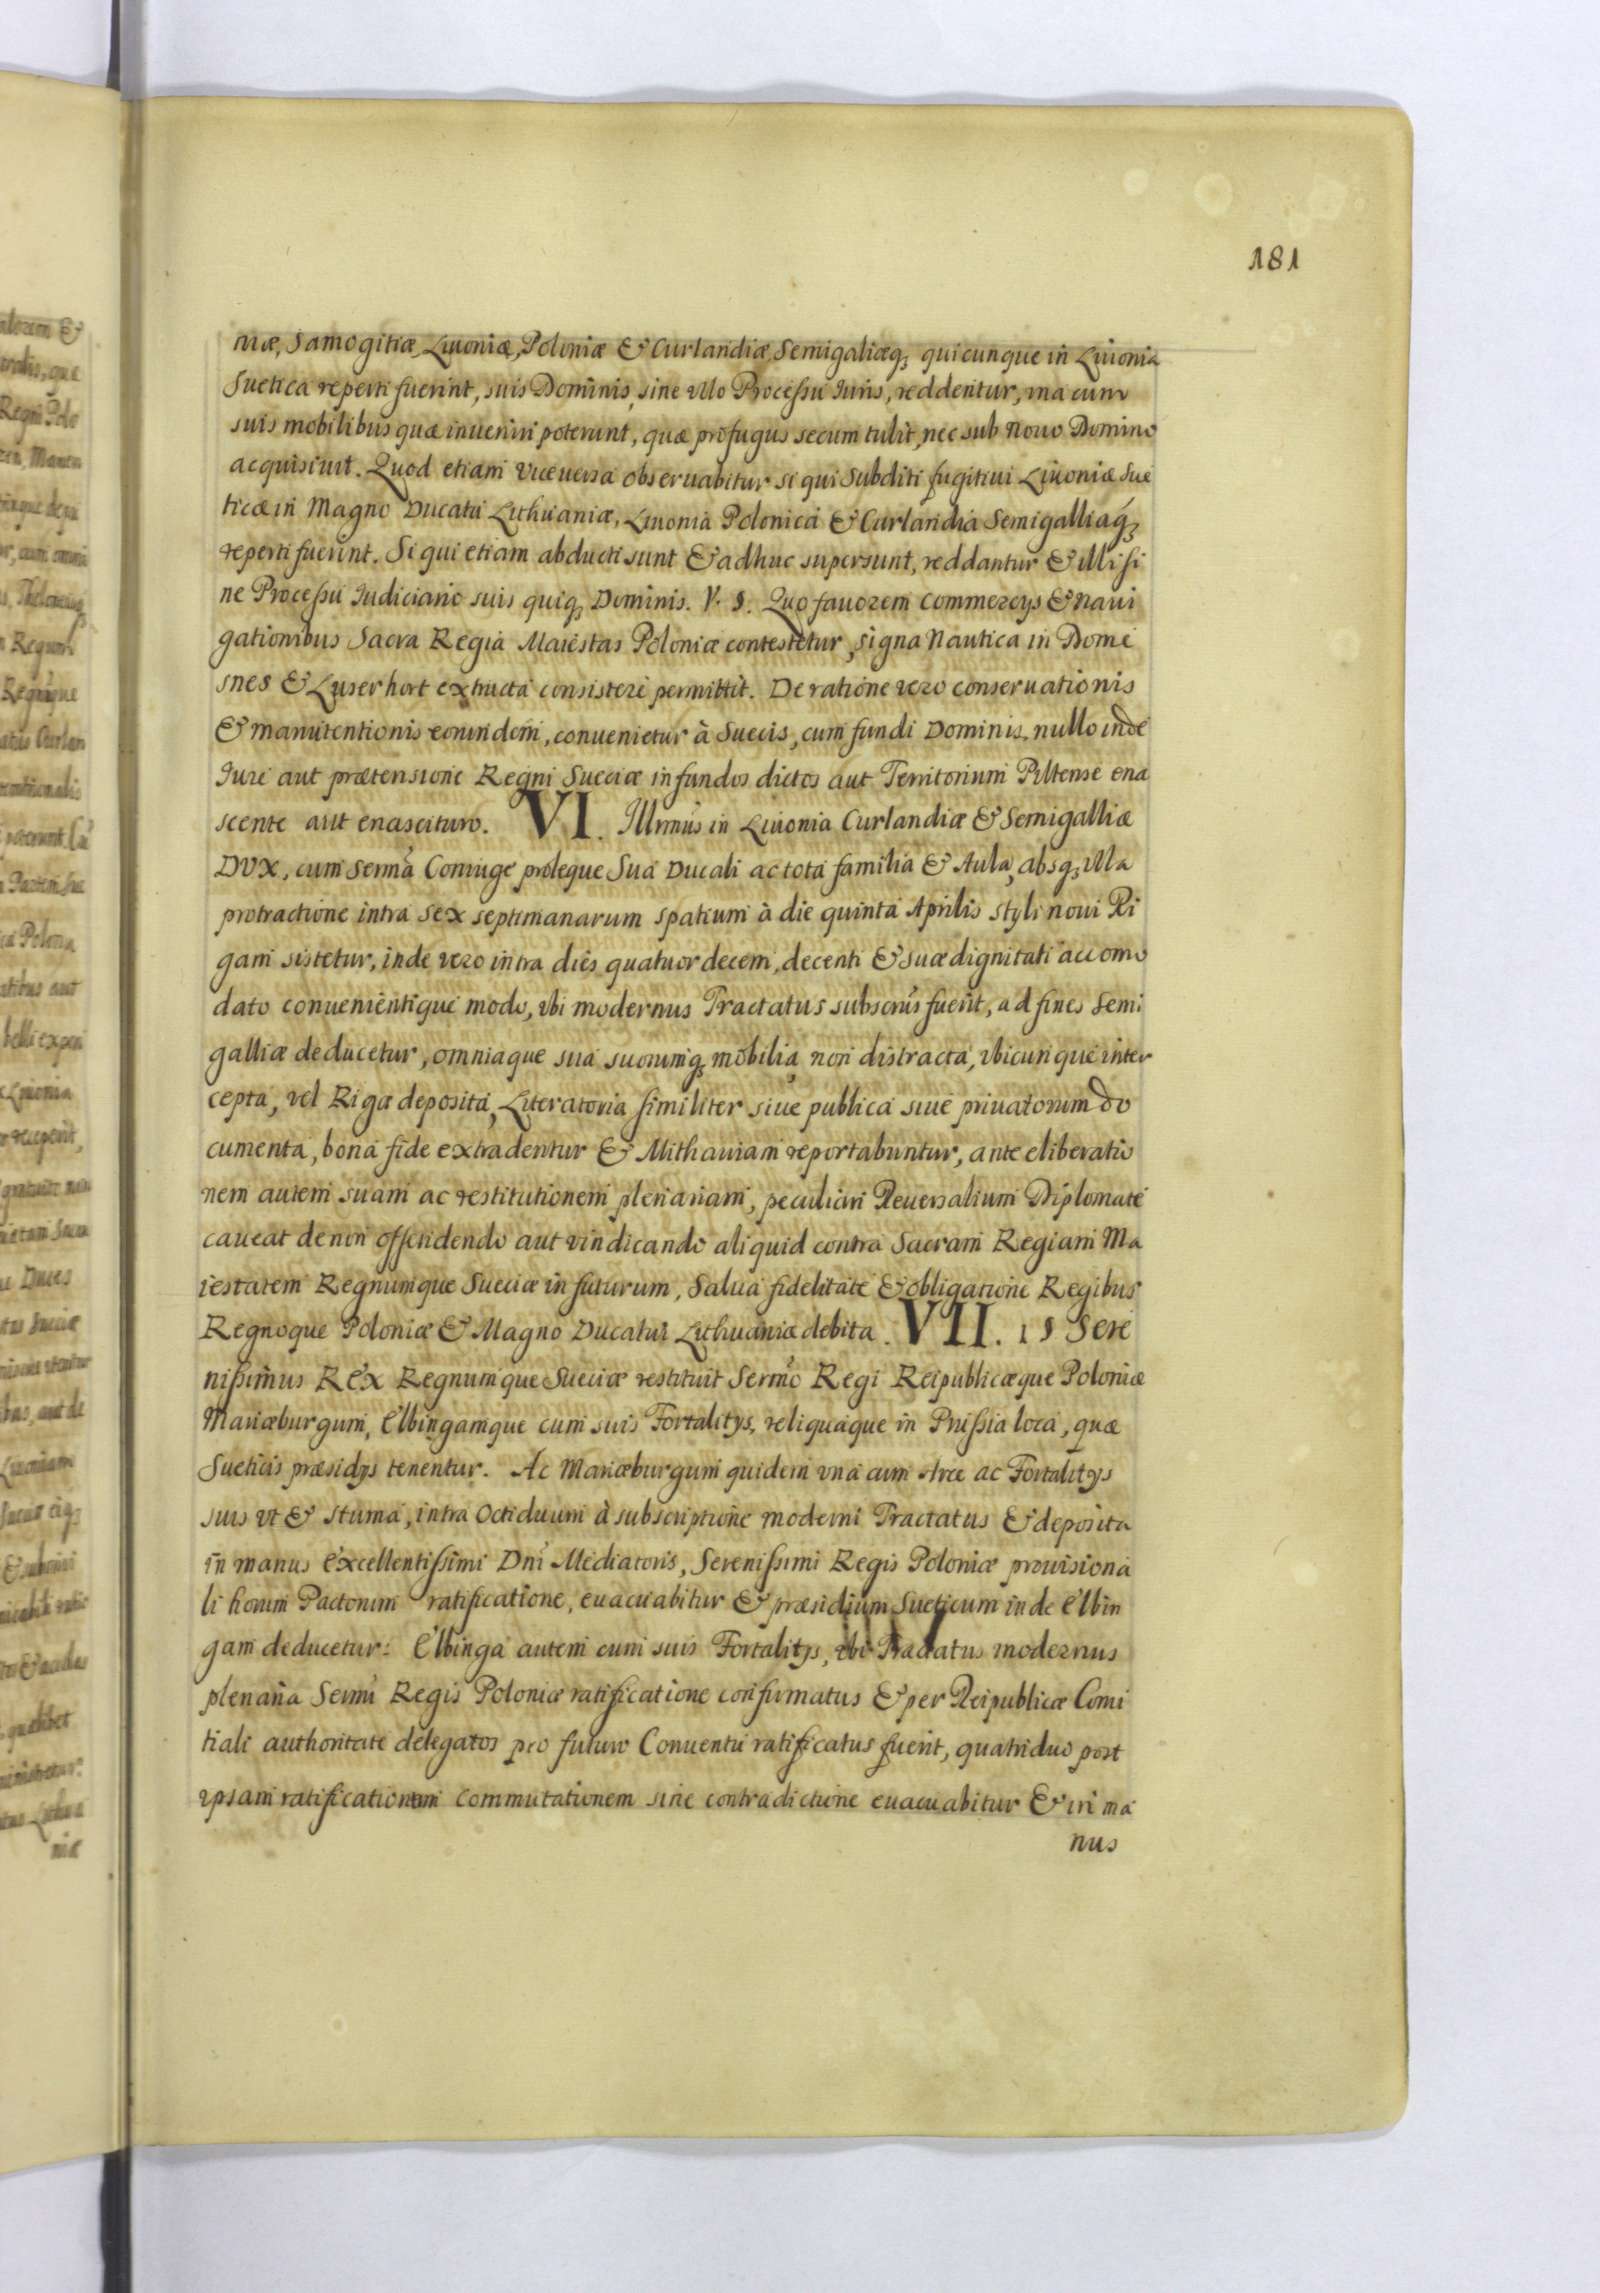 181
niæ, Samogitiæ, Liuoniæ, Poloniæ & Curlandiæ, Semigaliæq; quicunque in Liuonia
Suetica reperti fuerint, suis Dominis, sine vllo Processu Iuris, reddentur, vna cum
suis mobilibus quæ inueniri poterunt, quæ profugus secum tulit, nec sub nouo Domino
acquisiuit. Quod etiam viceuersa obseruabitur si qui Subditi fugitiui Liuoniæ Sue
ticæ in Magno Ducatu Lithuaniæ, Liuonia Polonica & Curlandia Semigalliaq;
reperti fuerint. Si qui etiam abducti sunt & adhuc supersunt, reddantur & illi si
ne Processu Iudiciario suis quiq; Dominis. V. §. Quo fauorem commercys & naui
gationibus Sacra Regia Maiestas Poloniæ contestetur, signa Nautica in Dome
snes & Luserhort extructa consistere permittit. De ratione vero conseruationis
& manutentionis eorundem, conuenietur à Suecis, cum fundi Dominis, nullo inde
Iure aut prætensione Regni Sueciæ in fundos dictos aut Territorium Piltense ena
scente aut enascituro. VI. Illrmus in Liuonia Curlandiæ & Semigalliæ
DVX, cum Sermâ Coniuge proleque Sua Ducali ac tota familia & Aula, absq; vlla
protractione intra sex septimanarum spatium à die quinta Aprilis styli noui Ri
gam sistetur, inde vero intra dies quatuordecem, decenti & suæ dignitati accomo
dato conuenientique modo, vbi modernus Tractatus subscrus fuerit, ad fines Semi
galliæ deducetur, omniaque sua suorumq; mobilia non distracta, vbicunque inter
cepta, vel Rigæ deposita, Literatoria similiter siue publica siue priuatorum do
cumenta, bona fide extradentur & Mithauiam reportabuntur, ante eliberatio
nem autem suam ac restitutionem plenariam, peculiari Reuersalium Diplomate
caueat de non offendendo aut vindicando aliquid contra Sacram Regiam Ma
iestatem Regnumque Sueciæ in futurum, Salua fidelitate & obligatione Regibus
Regnoque Poloniæ & Magno Ducatui Lithuaniæ debita. VII. 1 § Sere
nissimus Rex Regnumque Sueciæ restituit Sermo Regi Reipublicæque Poloniæ
Mariæburgum, Elbingamque cum suis Fortalitys, reliquaque in Prussia loca, quæ
Sueticis præsidys tenentur. Ac Mariæburgum quidem vna cum Arce ac Fortalitys
suis vt & Stuma, intra Octiduum à subscriptione moderni Tractatus & deposita
in manus Excellentissimi Dni Mediatoris, Serenissimi Regis Poloniæ prouisiona
li horum Pactorum ratificatione, euacuabitur & præsidium Sueticum inde Elbin
gam deducetur: Elbinga autem cum suis Fortalitys, vbi Tractatus modernus
plenaria Sermi Regis Poloniæ ratificatione confirmatus & per Reipublicæ Comi
tiali authoritate delegatos pro futuro Conuentu ratificatus fuerit, quatriduo post
ipsam ratificationem commutationem sine contradictione euacuabitur & in ma
nus